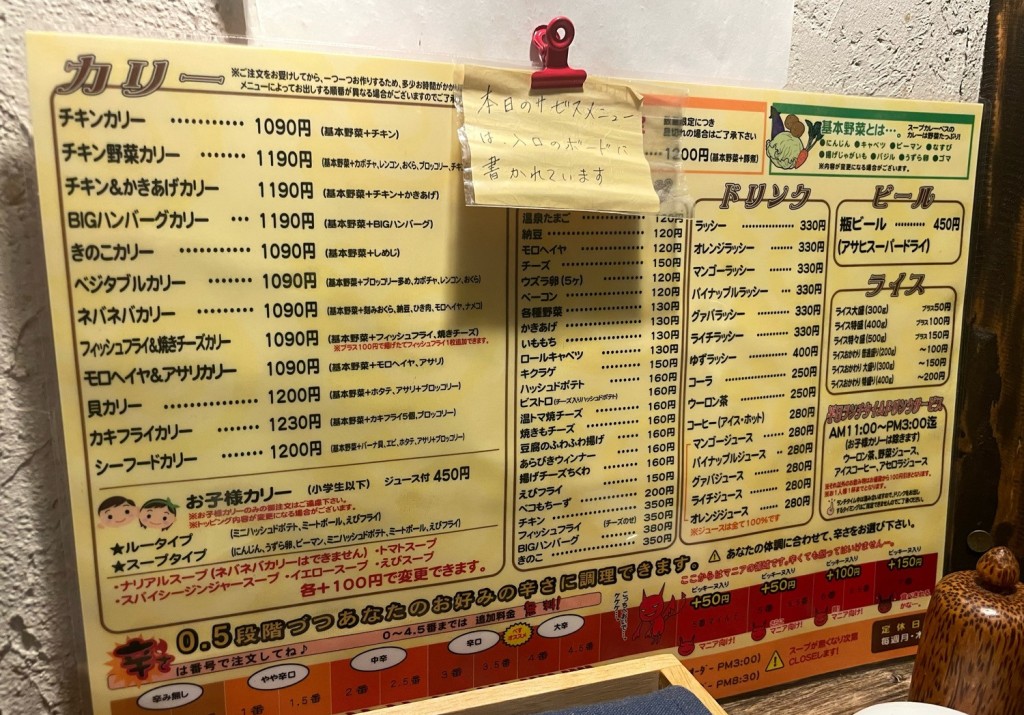 カリー
※ご注文をお受けしてから、一つ一つお作りするため、多少お時間がかか
メニューによってお出しする順番が異なる場合がございますのでご了承
チキンカリー ………… 1090円 (基本野菜+チキン)
チキン野菜カリー …… 1190円 (基本野菜+カボチャ、レンコン、おくら、ブロッコリー、チキ
チキン&かきあげカリー 1190円 (基本野菜+チキン+かきあげ)
BIGハンバーグカリー … 1190円 (基本野菜+BIGハンバーグ)
きのこカリー ………… 1090円 (基本野菜+しめじ)
ベジタブルカリー …… 1090円 (基本野菜+ブロッコリー多め、カボチャ、レンコン、おくら)
ネバネバカリー ……… 1090円 (基本野菜+刻みおくら、納豆、ひき肉、モロヘイヤ、ナメコ)
フィッシュフライ&焼きチーズカリー 1090円 (基本野菜+フィッシュフライ、焼きチーズ)
※プラス100円で揚げたてフィッシュフライ1枚追加できます。
モロヘイヤ&アサリカリー 1090円 (基本野菜+モロヘイヤ、アサリ)
貝カリー ……………… 1200円 (基本野菜+ホタテ、アサリ+ブロッコリー)
カキフライカリー …… 1230円 (基本野菜+カキフライ5個、ブロッコリー)
シーフードカリー …… 1200円 (基本野菜+パーナ貝、エビ、ホタテ、アサリ+ブロッコリー)
お子様カリー (小学生以下) ジュース付 450円
※お子様カリーのみの御注文はご遠慮下さい。
※トッピング内容が変更になる場合がございます。
★ルータイプ (ミニハッシュドポテト、ミートボール、えびフライ)
★スープタイプ (にんじん、うずら卵、ピーマン、ミニハッシュドポテト、ミートボール、えびフライ)
・ナリアルスープ(ネバネバカリーはできません) ・トマトスープ
・スパイシージンジャースープ ・イエロースープ ・えびスープ
各+100円で変更できます。
本日のサービスメニュー
は、入口のボードに
書かれています
数量限定につき
品切れの場合はご了承下さい
1200円(基本野菜+豚煮)
温泉たまご 120円
納豆 120円
モロヘイヤ 120円
チーズ 150円
ウズラ卵(5ヶ) 120円
ベーコン 120円
各種野菜 130円
かきあげ 130円
いももち 130円
ロールキャベツ 130円
キクラゲ 150円
ハッシュドポテト 160円
ビストロ(チーズ入りハッシュドポテト) 160円
温トマ焼チーズ 160円
焼きもチーズ 160円
豆腐のふわふわ揚げ 160円
あらびきウィンナー 160円
揚げチーズちくわ 150円
えびフライ 200円
べコもちーず 350円
チキン (チーズのせ) 350円
フィッシュフライ 380円
BIGハンバーグ 350円
きのこ
基本野菜とは…。
スープカレーベースの
カレーは野菜たっぷり!
●にんじん ●キャベツ ●ピーマン ●なすび
●揚げじゃがいも ●バジル ●うずら卵 ●ゴマ
※内容が変更になる場合がございます。
ドリンク
ラッシー 330円
オレンジラッシー 330円
マンゴーラッシー 330円
パイナップルラッシー 330円
グァバラッシー 330円
ライチラッシー 330円
ゆずラッシー 400円
コーラ 250円
ウーロン茶 250円
コーヒー(アイス・ホット) 280円
マンゴージュース 280円
パイナップルジュース 280円
グァバジュース 280円
ライチジュース 280円
オレンジジュース 280円
※ジュースは全て100%です
ビール
瓶ビール …… 450円
(アサヒスーパードライ)
ライス
ライス大盛(300g) プラス50円
ライス特盛(400g) プラス100円
ライス特々盛(500g) プラス150円
ライスおかわり 普通盛り(200g) ～100円
ライスおかわり 大盛り(300g) ～150円
ライスおかわり 特盛り(400g) ～200円
平日ランチタイムドリンクサービス
AM11:00～PM3:00迄
(お子様カリーは除きます)
ウーロン茶、野菜ジュース、
アイスコーヒー、アセロラジュース
0.5段階づつあなたのお好みの辛さに調理できます。
⚠あなたの体調に合わせて、辛さをお選び下さい。
ここからはマニアの領域です。辛くても残ってはいけませんー。
辛さ
は番号で注文してね♪
0～4.5番までは 追加料金 無料!
ピッキーヌ入り +50円
ピッキーヌ入り +50円
ピッキーヌ入り +100円
ピッキーヌ入り +150円
マニア向け!
マニア向け!
マニア向け!
辛み無し
やや辛口
中辛
辛口
大辛
1番
1.5番
2番
2.5番
3番
3.5番
4番
4.5番
オーダー PM3:00)
ー PM8:30)
スープが無くなり次第
CLOSEします!
定休日
毎週月・木